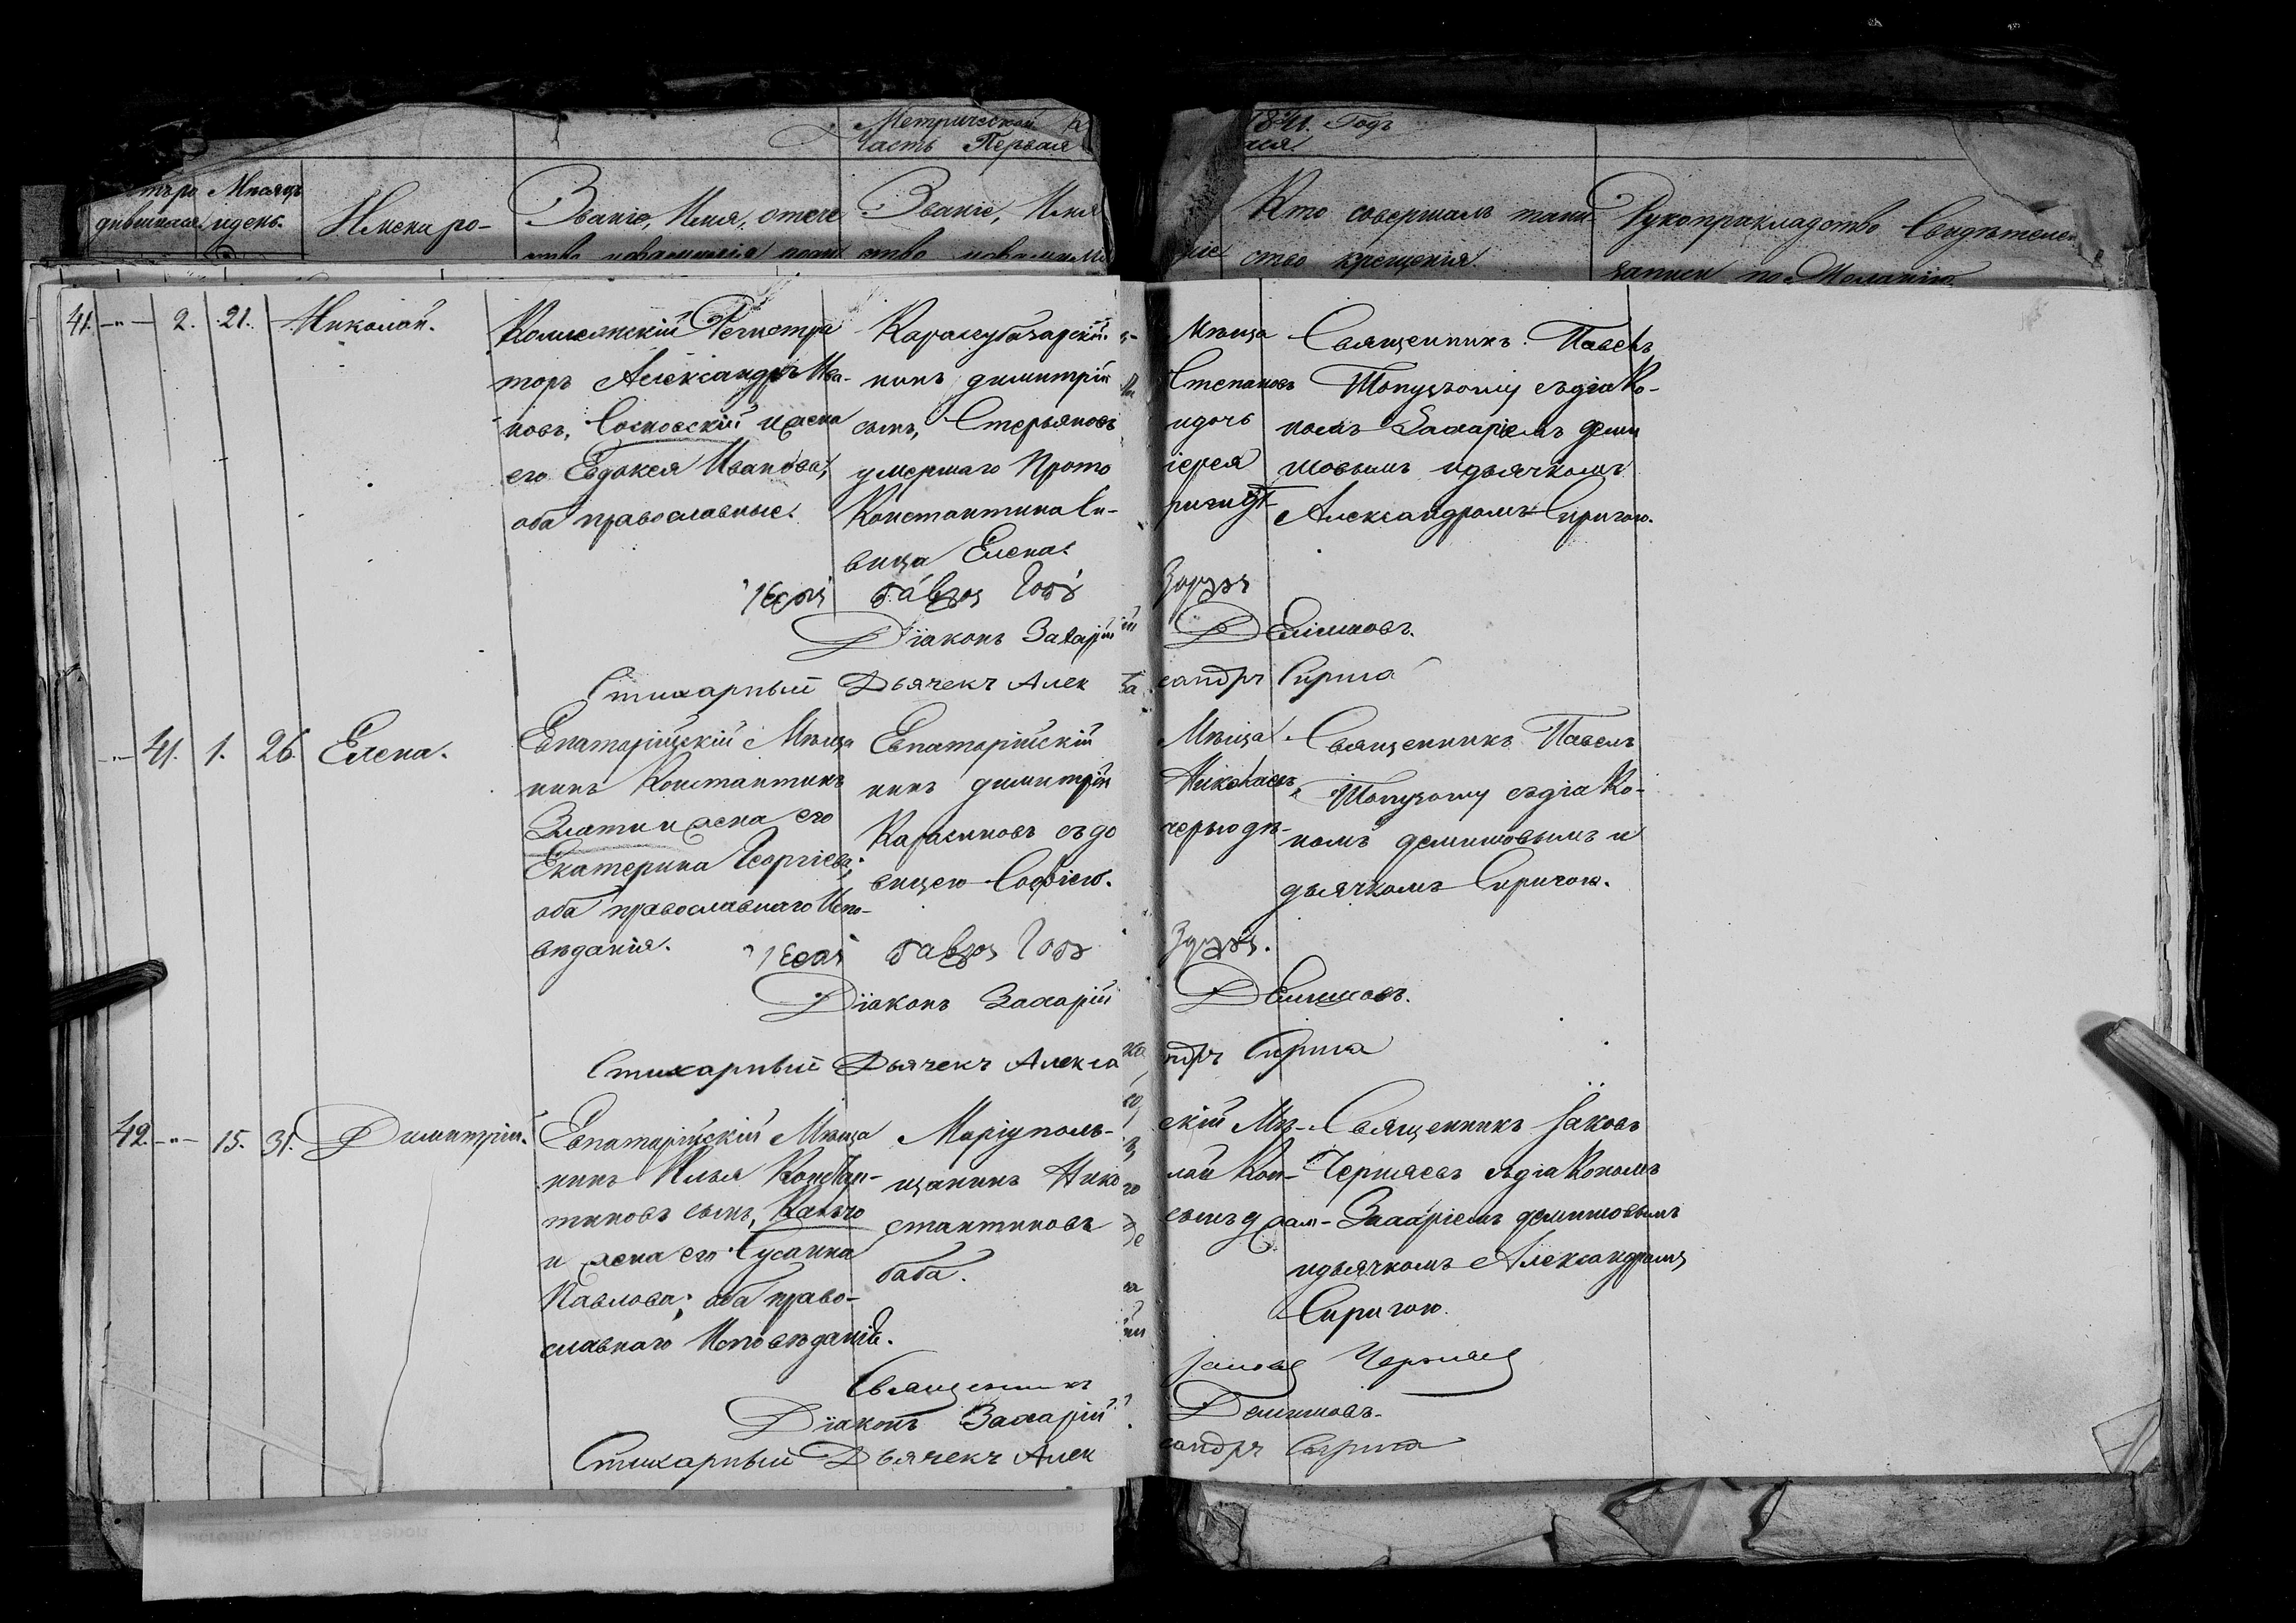 Метрической
Часть Первая
1841. Годъ
Мѣсяцъ
и день.
Имена ро-
Званіе, Имя, отече
Званіе, Имя
Кто совершалъ таин
ство крещенія.
Рукоприкладство Свидѣтелей
записи по Желанію
41. -"- 2. 21. Николай.
Коллежскій Регистра
торъ Александръ Ива-
новъ, Сосновскій и жена
его Евдокея Иванова;
оба православные.
Карасубазарскій Мѣща
нинъ Димитрій Степановъ
сынъ, Стерьяновъ и дочь
умершаго Протоіерея
Константина
вица Елена.
Священникъ Павелъ
съ діако-
номъ Захаріемъ Деми
шовымъ и дьячкомъ
Александромъ Сиригою.
Діаконъ Захарій Демишовъ.
Стихарный Дьячекъ Александръ Сирига
-"- 41. 1. 26. Елена.
Евпаторійскій Мѣща
нинъ Константинъ
Злати и жена его
Екатерина Георгіева;
оба православнаго Испо-
вѣданія.
Евпаторійскій Мѣща
нинъ Димитрій Николаевъ
Карасиновъ съ дочерью дѣ-
вицею Софіею.
Священникъ Павелъ
съ діако-
номъ Демишовымъ и
дьячкомъ Сиригою.
Діаконъ Захарій Демишовъ.
Стихарный Дьячекъ Александръ Сирига
42. -"- 15. 31. Димитрій.
Евпаторійскій Мѣща
нинъ Илья Констан-
тиновъ сынъ,
и жена его Сусанна
Павлова; оба право-
славнаго Исповѣданія.
Маріупольскій Мѣ-
щанинъ Николай Кон-
стантиновъ сынъ
баба.
Священникъ Іаковъ
Черняевъ съ діакономъ
Захаріемъ Демишовымъ
и дьячкомъ Александромъ
Сиригою.
Священникъ Іаковъ Черняевъ
Діаконъ Захарій Демишовъ.
Стихарный Дьячекъ Александръ Сирига